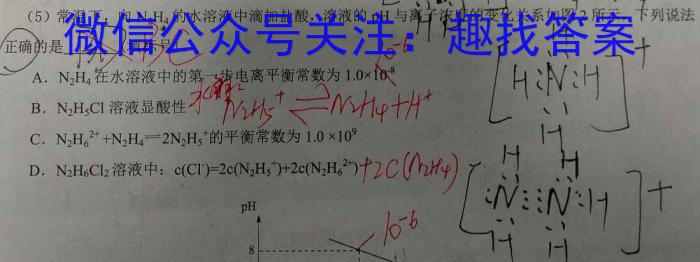 (5) 常温下，向N₂H₄的水溶液中滴加盐酸，溶液的pH与离子浓度的变化关系如图所示，下列说法
正确的是
微信公众号关注：趣找答案
10⁻⁶
A. N₂H₄在水溶液中的第一步电离平衡常数为1.0×10⁻⁸
B. N₂H₅Cl溶液显酸性 水解 N₂H₅⁺ ⇌ N₂H₄+H⁺
C. N₂H₆²⁺+N₂H₄═2N₂H₅⁺的平衡常数为1.0 ×10⁹
D. N₂H₆Cl₂溶液中：c(Cl⁻)=2c(N₂H₅⁺)+2c(N₂H₆²⁺)+2c(N₂H₄)
pH
8
10⁻⁶